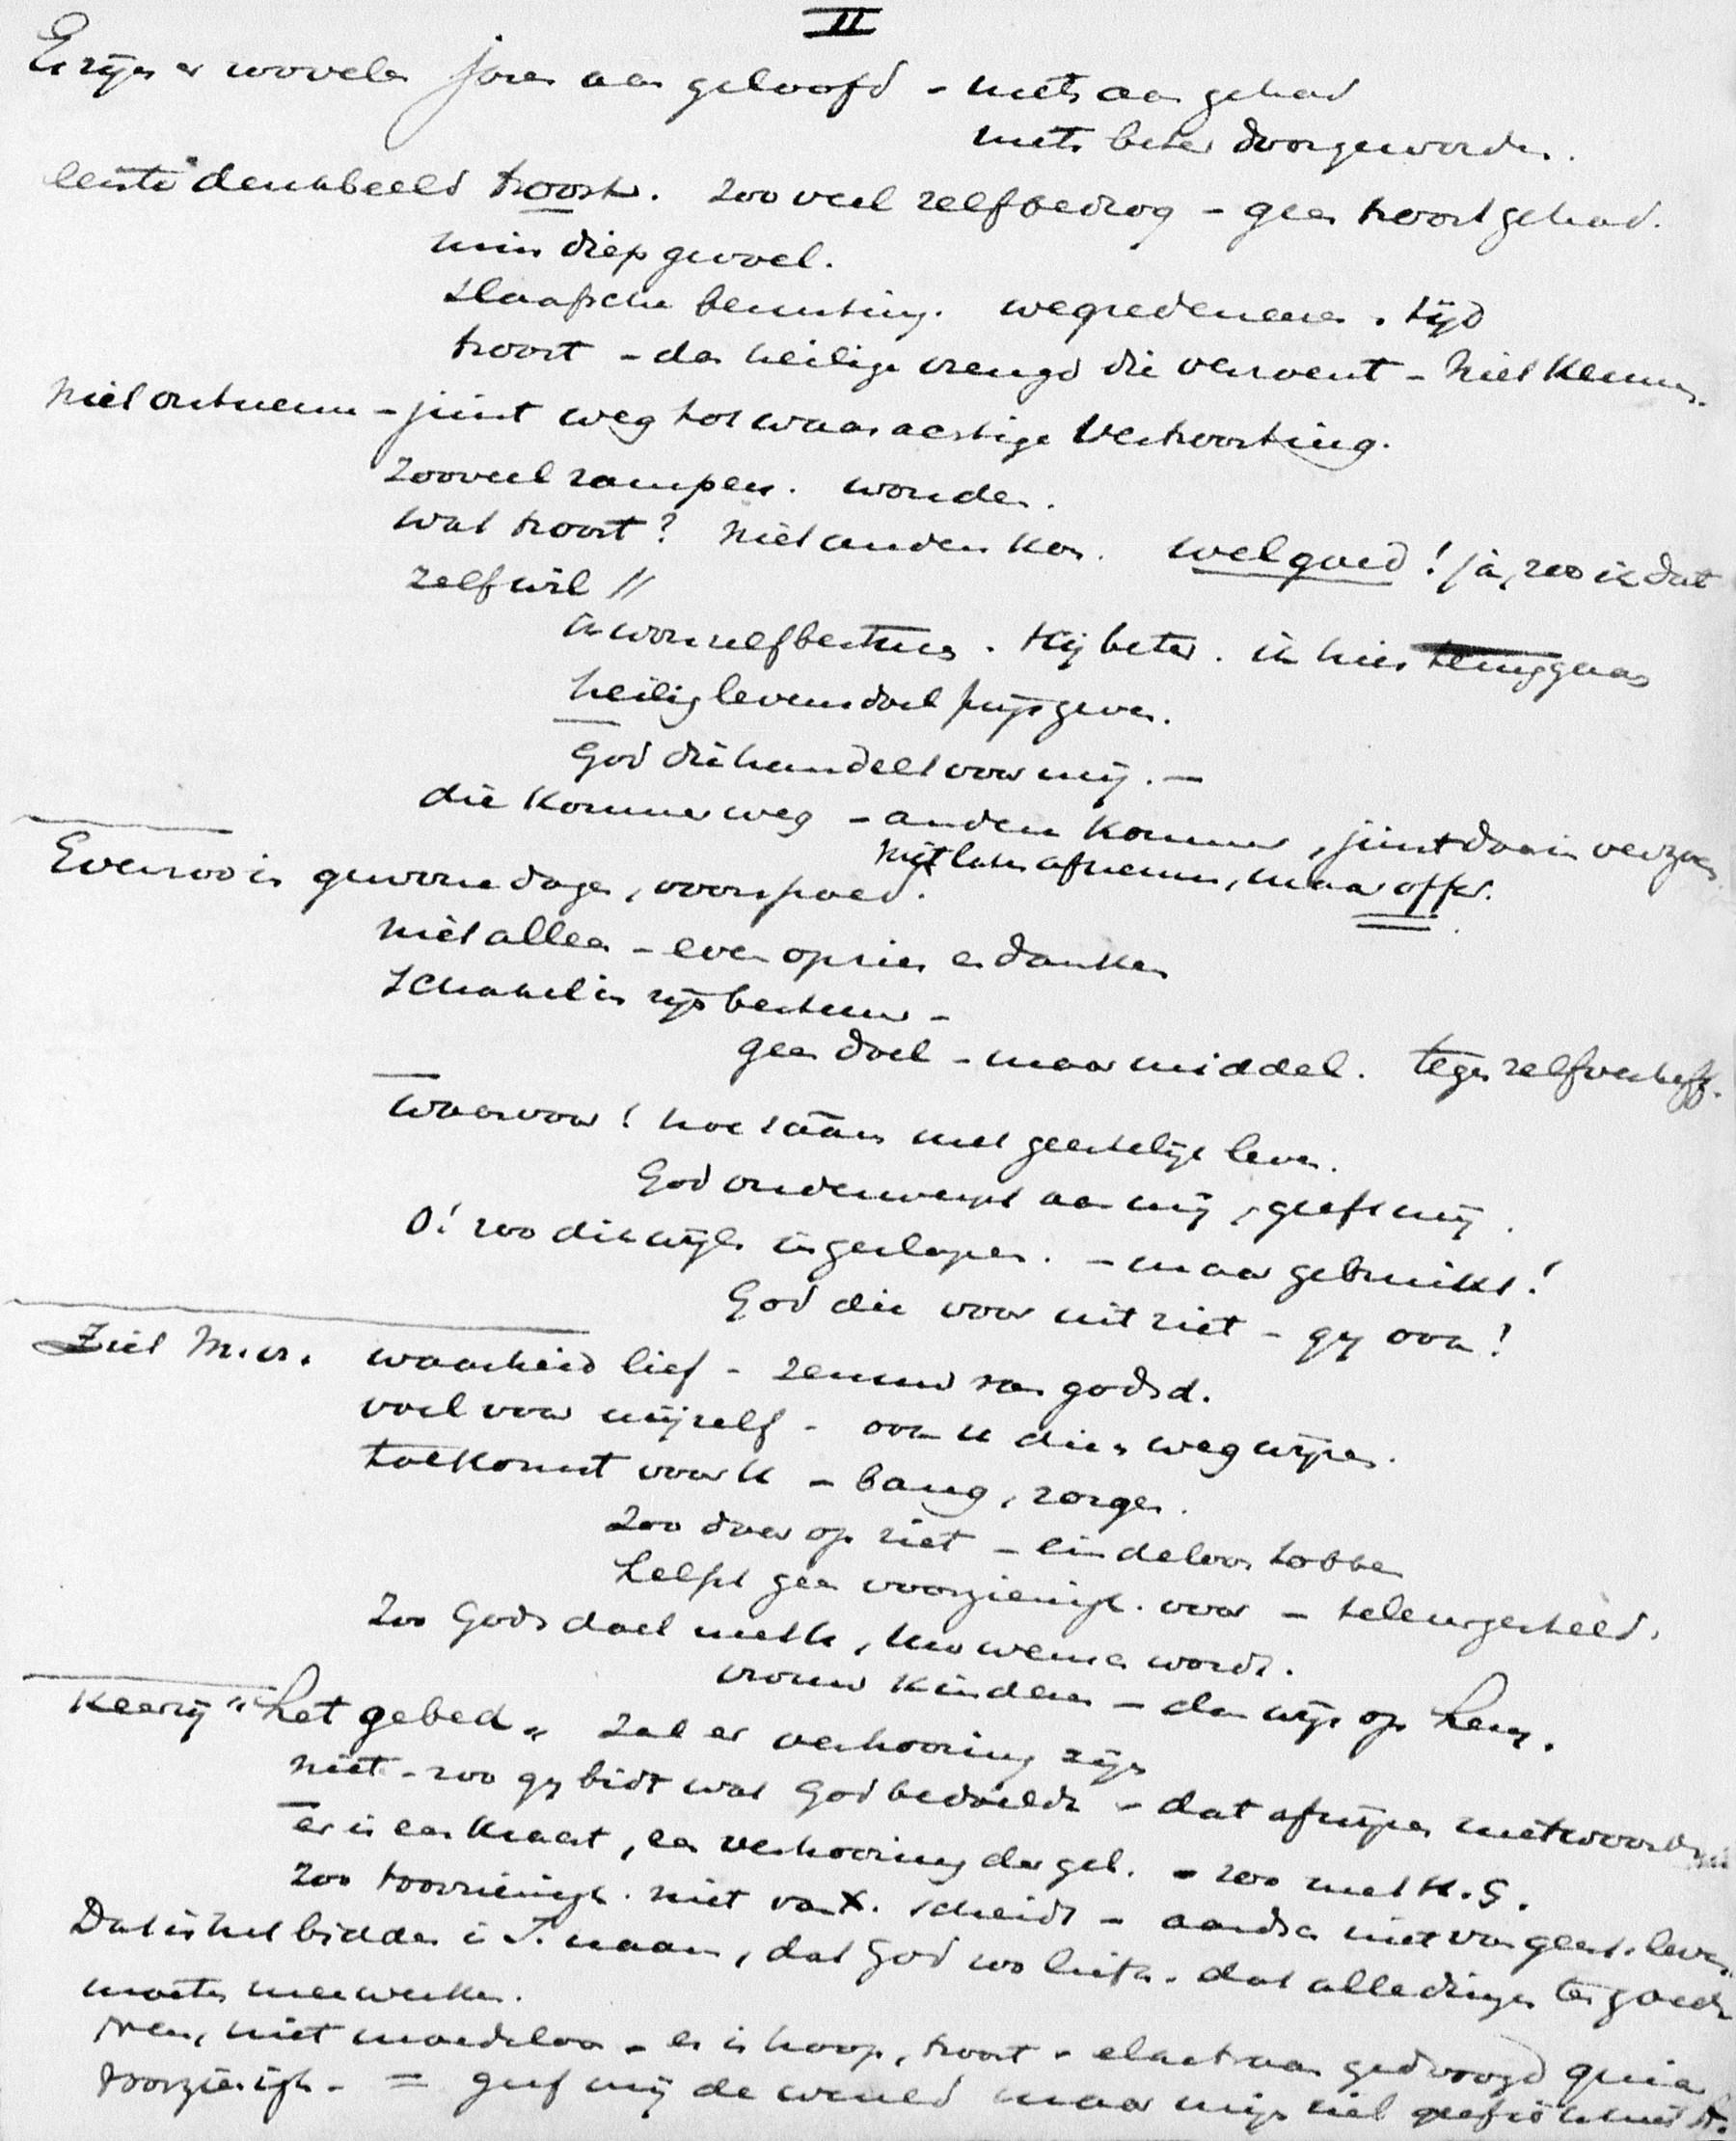 II
Er zijn er zoovelen jaren aan geloofd - niets aan gehad
niets beter door geworden.
eerste denkbeeld troost. Zooveel zelfbedrog - geen troost gehad.
min diep gevoel.
slaafsche berusting. wegredeneeren. tijd
troost - den heilige vreugd die - niet kennen.
niet ontnemen - juist weg tot waarachtige Vertroosting.
Zooveel rampen. wonden.
wat troost? niet anders kon. wel goed! ja, zoo ik dat
zelf wil //
ik zelfbestuur. Hij beter. ik hier
heilig levensdoel prijsgeven.
God die handelt voor mij. -
die kommer weg - andere kommer, juist daarin
niet laten afnemen, maar offer.
Evenzoo in gewone dagen, voorspoed.
niet alleen - even opzien en danken
schakel in zijn bestuur -
geen doel - maar middel. tegen zelfverheff.
Waarvoor! hoe staan met geestelijk leven.
God onderwerpt aan mij, geeft mij.
O! zoo dikwijls ingeslapen. - maar gebruikt!
God die vooruit ziet - gy ook!
Ziet M. vr. waarheid lief - zenuw van godsd.
voel voor mijzelf - ook u dien weg wijzen.
toekomst voor u - bang, zorgen.
Zoo daar op ziet - eindeloos tobben
helpt geen voorzienigh. voor - teleurgesteld.
Zoo Gods doel met u, hoe wordt.
vrouw kinderen - dan wijs op hem.
Keerzij "het gebed" zal er verhooring zijn
niet - zoo gy bidt wat God bedoelde - dat afsmeeken met woorden
er is een kracht, een verhooring der geb. - zoo met H. G.
Zoo voorzienigh. niet van X. scheidt - aardsch niet van geest. leven.
Dat is het bidden in J. naam, dat God zoo liefh. dat alle dingen ten goede
moeten meewerken.
Neen, niet moedeloos - er is hoop, troost - quia
Voorzienigh. = geef mij de wereld maar mijn ziel